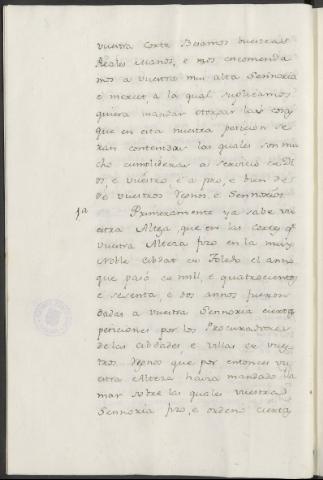 vuestra Corte Besamos vuestras
Reales Manos, e nos encomenda
mos a vuestra mui alta Sennoria
e merced, a la qual suplicamos
quiera mandar otorgar las cosas
que en esta nuestra peticion se
ran contenidas las quales son mu
cho cumplideras a servicio de Di
os, e vuestro e a pro, e bien de
de vuestros Regnos, e Sennorios.
1a Primeramente ya sabe vu
estra Alteza, que en las Cortes qe
vuestra Alteza fizo en la muy
Noble cibdat de Toledo el anno
que pasó de mill, e quatrocientos
e sesenta, e dos annos fueron
dadas a vuestra Sennoria ciertas
peticiones por los Procuradores
de las cibdades e villas de vues
tros Regnos que por entonces vu
estra Alteza havia mandado lla
mar sobre las quales vuestra
Sennoria fizo, e ordenó ciertas